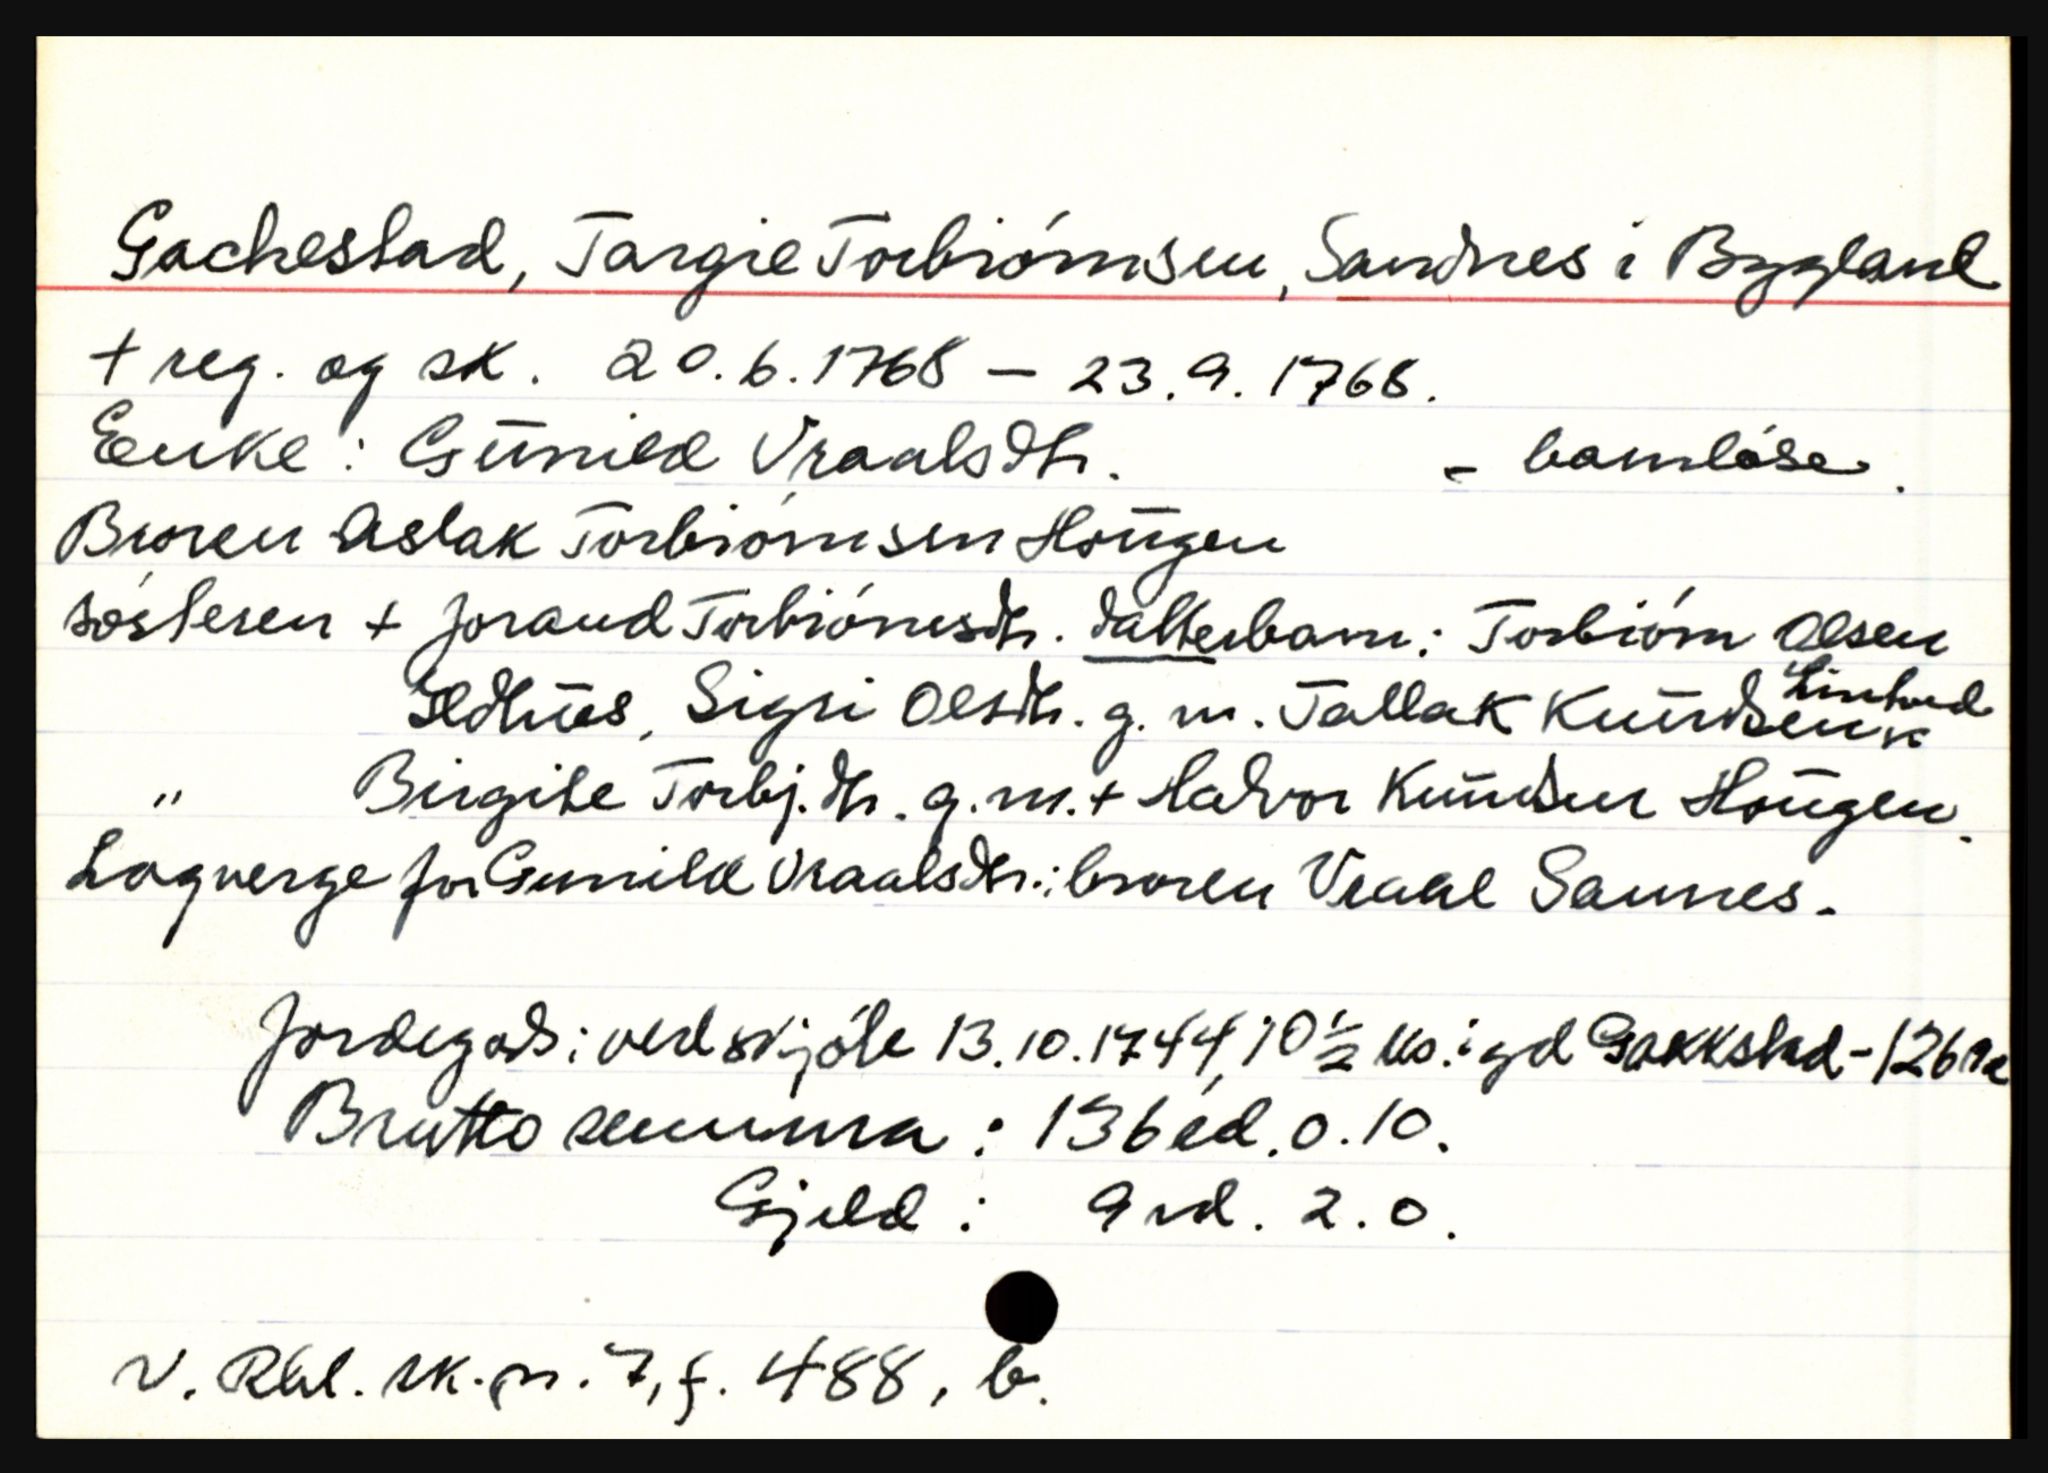 Gachestad, Targie Torbiórnsen, Sandnes i Bygland
+ reg. og sk. 20.6.1768 – 23.9.1768.
Enke: Gŭnild Vraalsdtr. - barnløse.
Broren Aslak Torbiórnsen Hoŭgen
søsteren + Joraand Torbiórnsdtr. datterbarn: Torbiórn Olsen
Ildhŭs, Sigri Olsdtr. g. m. Tallak Knŭdsen
Birgite Torbj.dtr. g.m. + Halvor Knŭdsen Hoŭgen.
"
Lagverge for Gunild Vraalsdtr.: broren Vraal Sannes.
Jordegods: ved skjóte 13.10.1744, 10 ½ ks. i gd Gakkstad - 126
Brutto summa: 136 rd. 0.10.
Gjeld: 9 rd. 2.0.
V. Rbl. sk.pr. 7, f. 488, b.